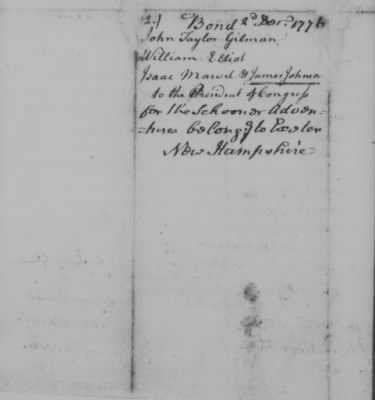 2.) Bond 2d Decr. 1776
John Taylor Gilman
William Elliot
Isaac Marvel & James Johnson
to the President of Congress
for the Schooner Adven-
-ture belongg to Exeter
New Hampshire